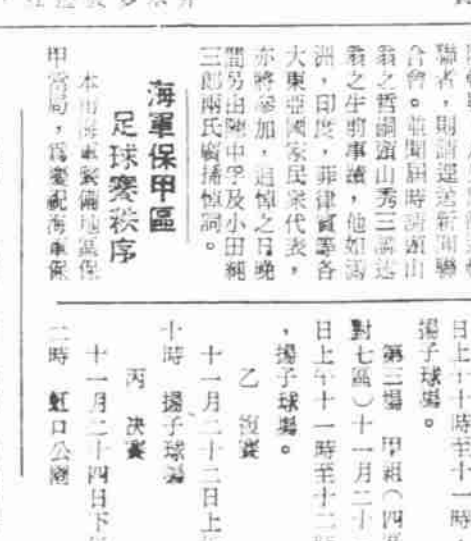 聯者，則請運送新聞聯
合會。並聞屆時請頭山
翁之哲嗣頭山秀三講述
翁之生前事蹟，他如滿
洲，印度，菲律賓等各
大東亞國家民衆代表，
亦將參加，追悼之日晚
間另由陳中孚及小田純
三郎兩氏廣播悼詞。
海軍保甲區
足球賽秩序
本市海軍警備地區保
甲當局，爲慶祝海軍保
日上十十時至十一時
揚子球場。
第三場 甲組（四區
對七區）十一月二十
日上午十一時至十二
，揚子球場。
乙 複賽
十一月二十二日上
十時 揚子球場
丙 決賽
十一月二十四日下
二時 虹口公園